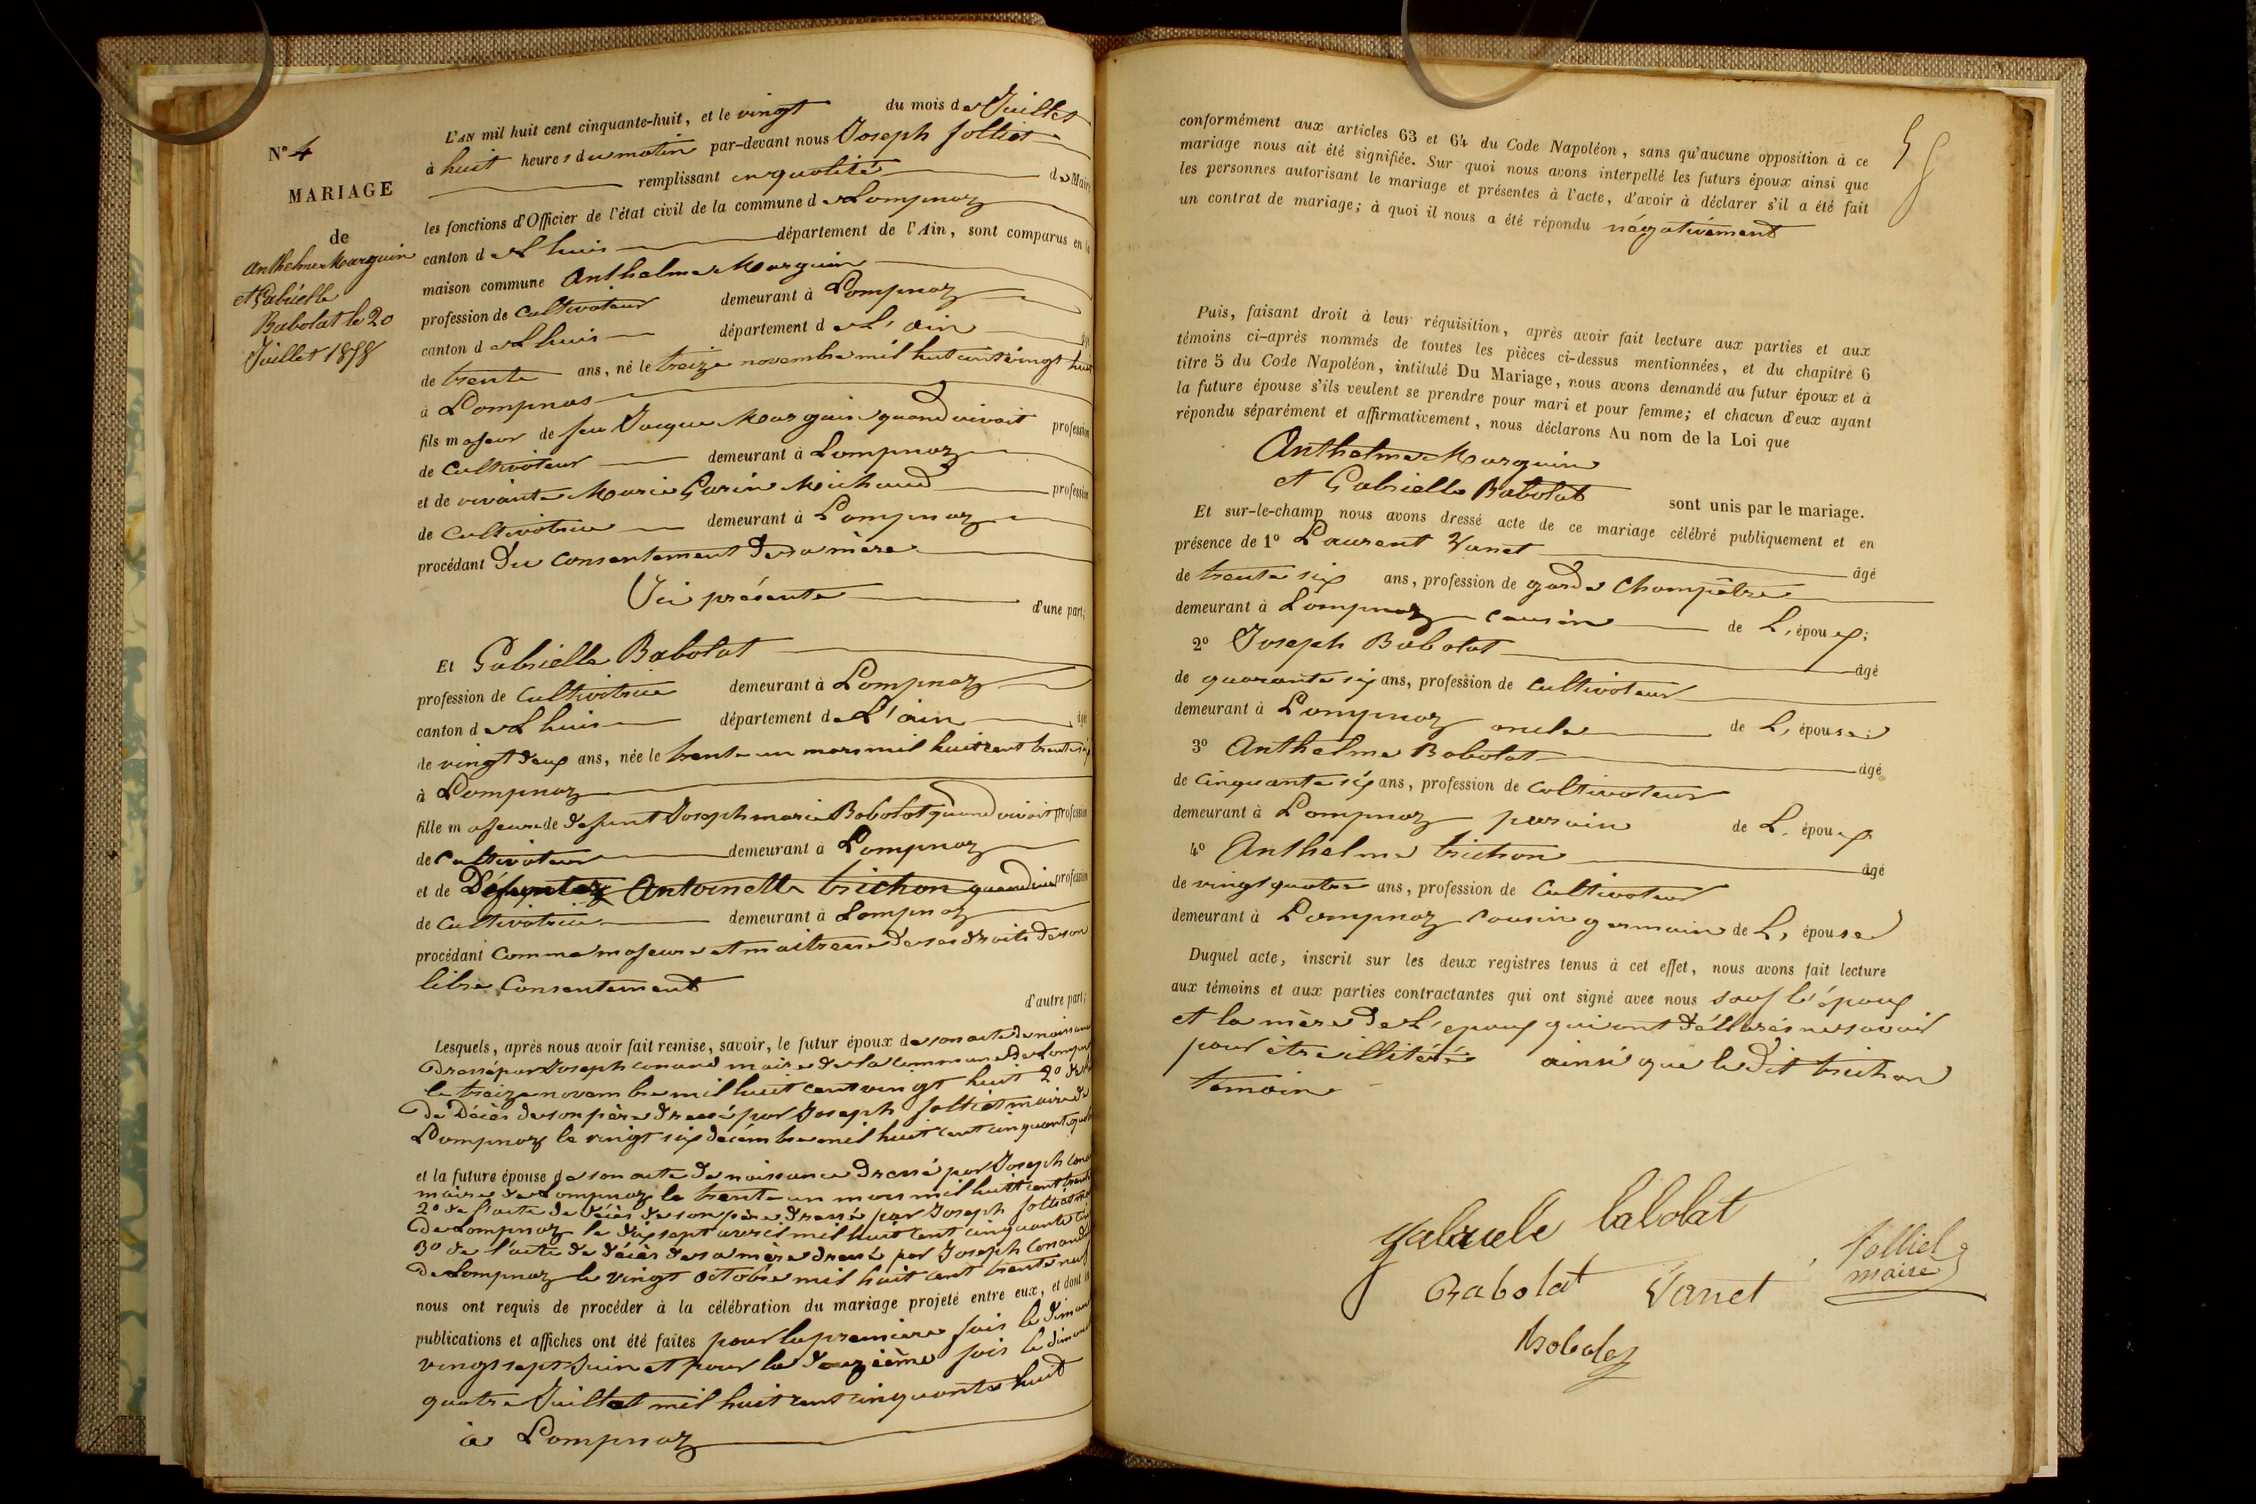 N° 4
MARIAGE
de
Anthelme Marguin
et Gabrielle
Babolat le 20
Juillet 1858
L'AN mil huit cent cinquante-huit, et le vingt du mois de Juillet
à huit heures du matin par-devant nous Joseph Jolliet
remplissant en qualité de Maire
les fonctions d'Officier de l'état civil de la commune de Lompnaz
canton de Lhuis département de l'Ain, sont comparus en la
maison commune Anthelme Marguin
profession de Cultivateur demeurant à Lompnaz
canton de Lhuis département de L'ain âgé
de trente ans, né le treize novembre mil huit cent vingt huit
à Lompnas
fils majeur de feu Jacque Marguin quand vivait profession
de Cultivateur demeurant à Lompnaz
et de vivante Marie Garin Michaud profession
de Cultivatrice demeurant à Lompnaz
procédant Du Consentement de sa mère
Ici présente d'une part;
Et Gabrielle Babolat
profession de Cultivatrice demeurant à Lompnaz
canton de Lhuis département de L'ain âgé
de vingt deux ans, née le trente un mars mil huit cent trente six
à Lompnaz
fille majeure de defunt Joseph marie Babolat quand vivait profession
de Cultivateur demeurant à Lompnaz
et de Défunte Antoinette trichon quand vivait profession
de Cultivatrice demeurant à Lompnaz
procédant Comme majeure et maitresse de ses droits de son
libre Consentement
d'autre part;
Lesquels, après nous avoir fait remise, savoir, le futur époux de son acte de naissance
Dressé par Joseph conand maire de la commune de Lompnaz
le treize novembre mil huit cent vingt huit 2°
de Décès de son père dressé par Joseph Jolliet maire de
Lompnaz le vingt six décembre mil huit cent cinquante quatre
et la future épouse de son acte de naissance dressé par Joseph Conand
maire de Lompnaz le trente un mars mil huit cent trente
2° de l'acte de décès de son père dressé par Joseph Jolliet maire
de Lompnaz le dix sept avril mil huit cent cinquante
3° de l'acte de décès de sa mère dressé par Joseph Conand
de Lompnaz le vingt octobre mil huit cent trente neuf
nous ont requis de procéder à la célébration du mariage projeté entre eux, et dont les
publications et affiches ont été faites pour la première fois le diman
vingt sept Juin et pour la deuzième fois le dimanche
quatre Juillet mil huit cent cinquante huit
à Lompnaz
58
conformément aux articles 63 et 64 du Code Napoléon, sans qu'aucune opposition à ce
mariage nous ait été signifiée. Sur quoi nous avons interpellé les futurs époux ainsi que
les personnes autorisant le mariage et présentes à l'acte, d'avoir à déclarer s'il a été fait
un contrat de mariage; à quoi il nous a été répondu négativement
Puis, faisant droit à leur réquisition, après avoir fait lecture aux parties et aux
témoins ci-après nommés de toutes les pièces ci-dessus mentionnées, et du chapitre 6
titre 5 du Code Napoléon, intitulé Du Mariage, nous avons demandé au futur époux et à
la future épouse s'ils veulent se prendre pour mari et pour femme; et chacun d'eux ayant
répondu séparément et affirmativement, nous déclarons Au nom de la Loi que
Anthelme Marguin
et Gabrielle Babolat sont unis par le mariage.
Et sur-le-champ nous avons dressé acte de ce mariage célébré publiquement et en
présence de 1° Laurent Vanet âgé
de trente six ans, profession de garde Champêtre
demeurant à Lompnaz cousin de L'époux;
2° Joseph Babolat âgé
de quarante six ans, profession de cultivateur
demeurant à Lompnaz oncle de L'épouse;
3° Anthelme Babolat âgé
de Cinquante six ans, profession de Cultivateur
demeurant à Lompnaz parain de L'époux
4° Anthelme trichon âgé
de vingt quatre ans, profession de Cultivateur
demeurant à Lompnaz Cousin germain de L'épouse
Duquel acte, inscrit sur les deux registres tenus à cet effet, nous avons fait lecture
aux témoins et aux parties contractantes qui ont signé avec nous sauf l'époux
et la mère de L'epoux qui ont déclarés ne savoir
pour être illitéré ainsi que le dit trichon
temoin
gabriele babolat
Babolat Vanet Jolliet
maire
Babolat